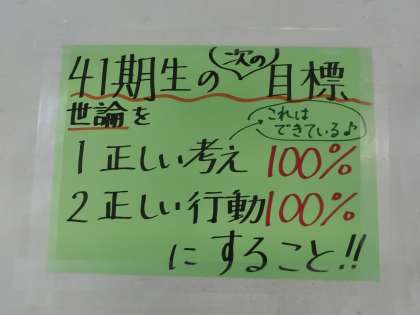 41期生の次の目標
世論を
これは
できているよ♪
1 正しい考え 100%
2 正しい行動100%
にすること!!